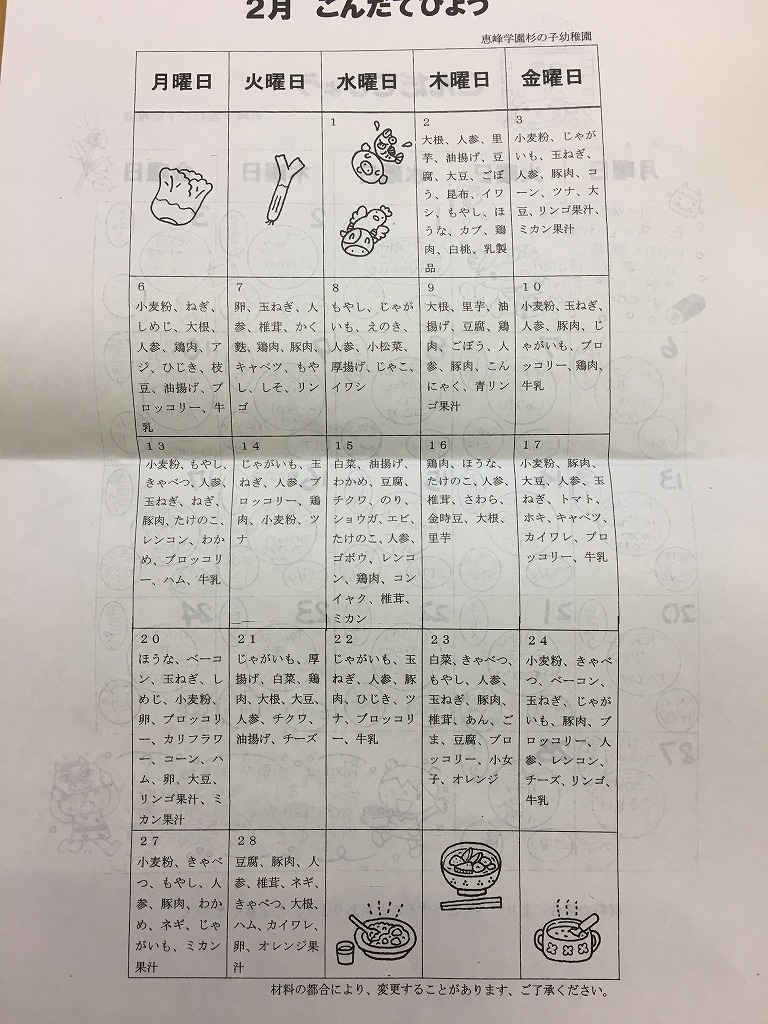 2月 こんだてひょう
恵峰学園杉の子幼稚園
月曜日
火曜日
水曜日
木曜日
金曜日
1
2
大根、人参、里
芋、油揚げ、豆
腐、大豆、ごぼ
う、昆布、イワ
シ、もやし、ほ
うな、カブ、鶏
肉、白桃、乳製
品
3
小麦粉、じゃが
いも、玉ねぎ、
人参、豚肉、コ
ーン、ツナ、大
豆、リンゴ果汁、
ミカン果汁
6
小麦粉、ねぎ、
しめじ、大根、
人参、鶏肉、ア
ジ、ひじき、枝
豆、油揚げ、ブ
ロッコリー、牛
乳
7
卵、玉ねぎ、人
参、椎茸、かく
麩、鶏肉、豚肉、
キャベツ、もや
し、しそ、リン
ゴ
8
もやし、じゃが
いも、えのき、
人参、小松菜、
厚揚げ、じゃこ、
イワシ
9
大根、里芋、油
揚げ、豆腐、鶏
肉、ごぼう、人
参、豚肉、こん
にゃく、青リン
ゴ果汁
10
小麦粉、玉ねぎ、
人参、豚肉、じ
ゃがいも、ブロ
ッコリー、鶏肉、
牛乳
13
小麦粉、もやし、
きゃべつ、人参、
玉ねぎ、ねぎ、
豚肉、たけのこ、
レンコン、わか
め、ブロッコリ
ー、ハム、牛乳
14
じゃがいも、玉
ねぎ、人参、ブ
ロッコリー、鶏
肉、小麦粉、ツ
ナ
15
白菜、油揚げ、
わかめ、豆腐、
チクワ、のり、
ショウガ、エビ、
たけのこ、人参、
ゴボウ、レンコ
ン、鶏肉、コン
イャク、椎茸、
ミカン
16
鶏肉、ほうな、
たけのこ、人参、
椎茸、さわら、
金時豆、大根、
里芋
17
小麦粉、豚肉、
大豆、人参、玉
ねぎ、トマト、
ホキ、キャベツ、
カイワレ、ブロ
ッコリー、牛乳
20
ほうな、ベーコ
ン、玉ねぎ、し
めじ、小麦粉、
卵、ブロッコリ
ー、カリフラワ
ー、コーン、ハ
ム、卵、大豆、
リンゴ果汁、ミ
カン果汁
21
じゃがいも、厚
揚げ、白菜、鶏
肉、大根、大豆、
人参、チクワ、
油揚げ、チーズ
22
じゃがいも、玉
ねぎ、人参、豚
肉、ひじき、ツ
ナ、ブロッコリ
ー、牛乳
23
白菜、きゃべつ、
もやし、人参、
玉ねぎ、豚肉、
椎茸、あん、ご
ま、豆腐、ブロ
ッコリー、小女
子、オレンジ
24
小麦粉、きゃべ
つ、ベーコン、
玉ねぎ、じゃが
いも、豚肉、ブ
ロッコリー、人
参、レンコン、
チーズ、リンゴ、
牛乳
27
小麦粉、きゃべ
つ、もやし、人
参、豚肉、わか
め、ネギ、じゃ
がいも、ミカン
果汁
28
豆腐、豚肉、人
参、椎茸、ネギ、
きゃべつ、大根、
ハム、カイワレ、
卵、オレンジ果
汁
材料の都合により、変更することがあります、ご了承ください。